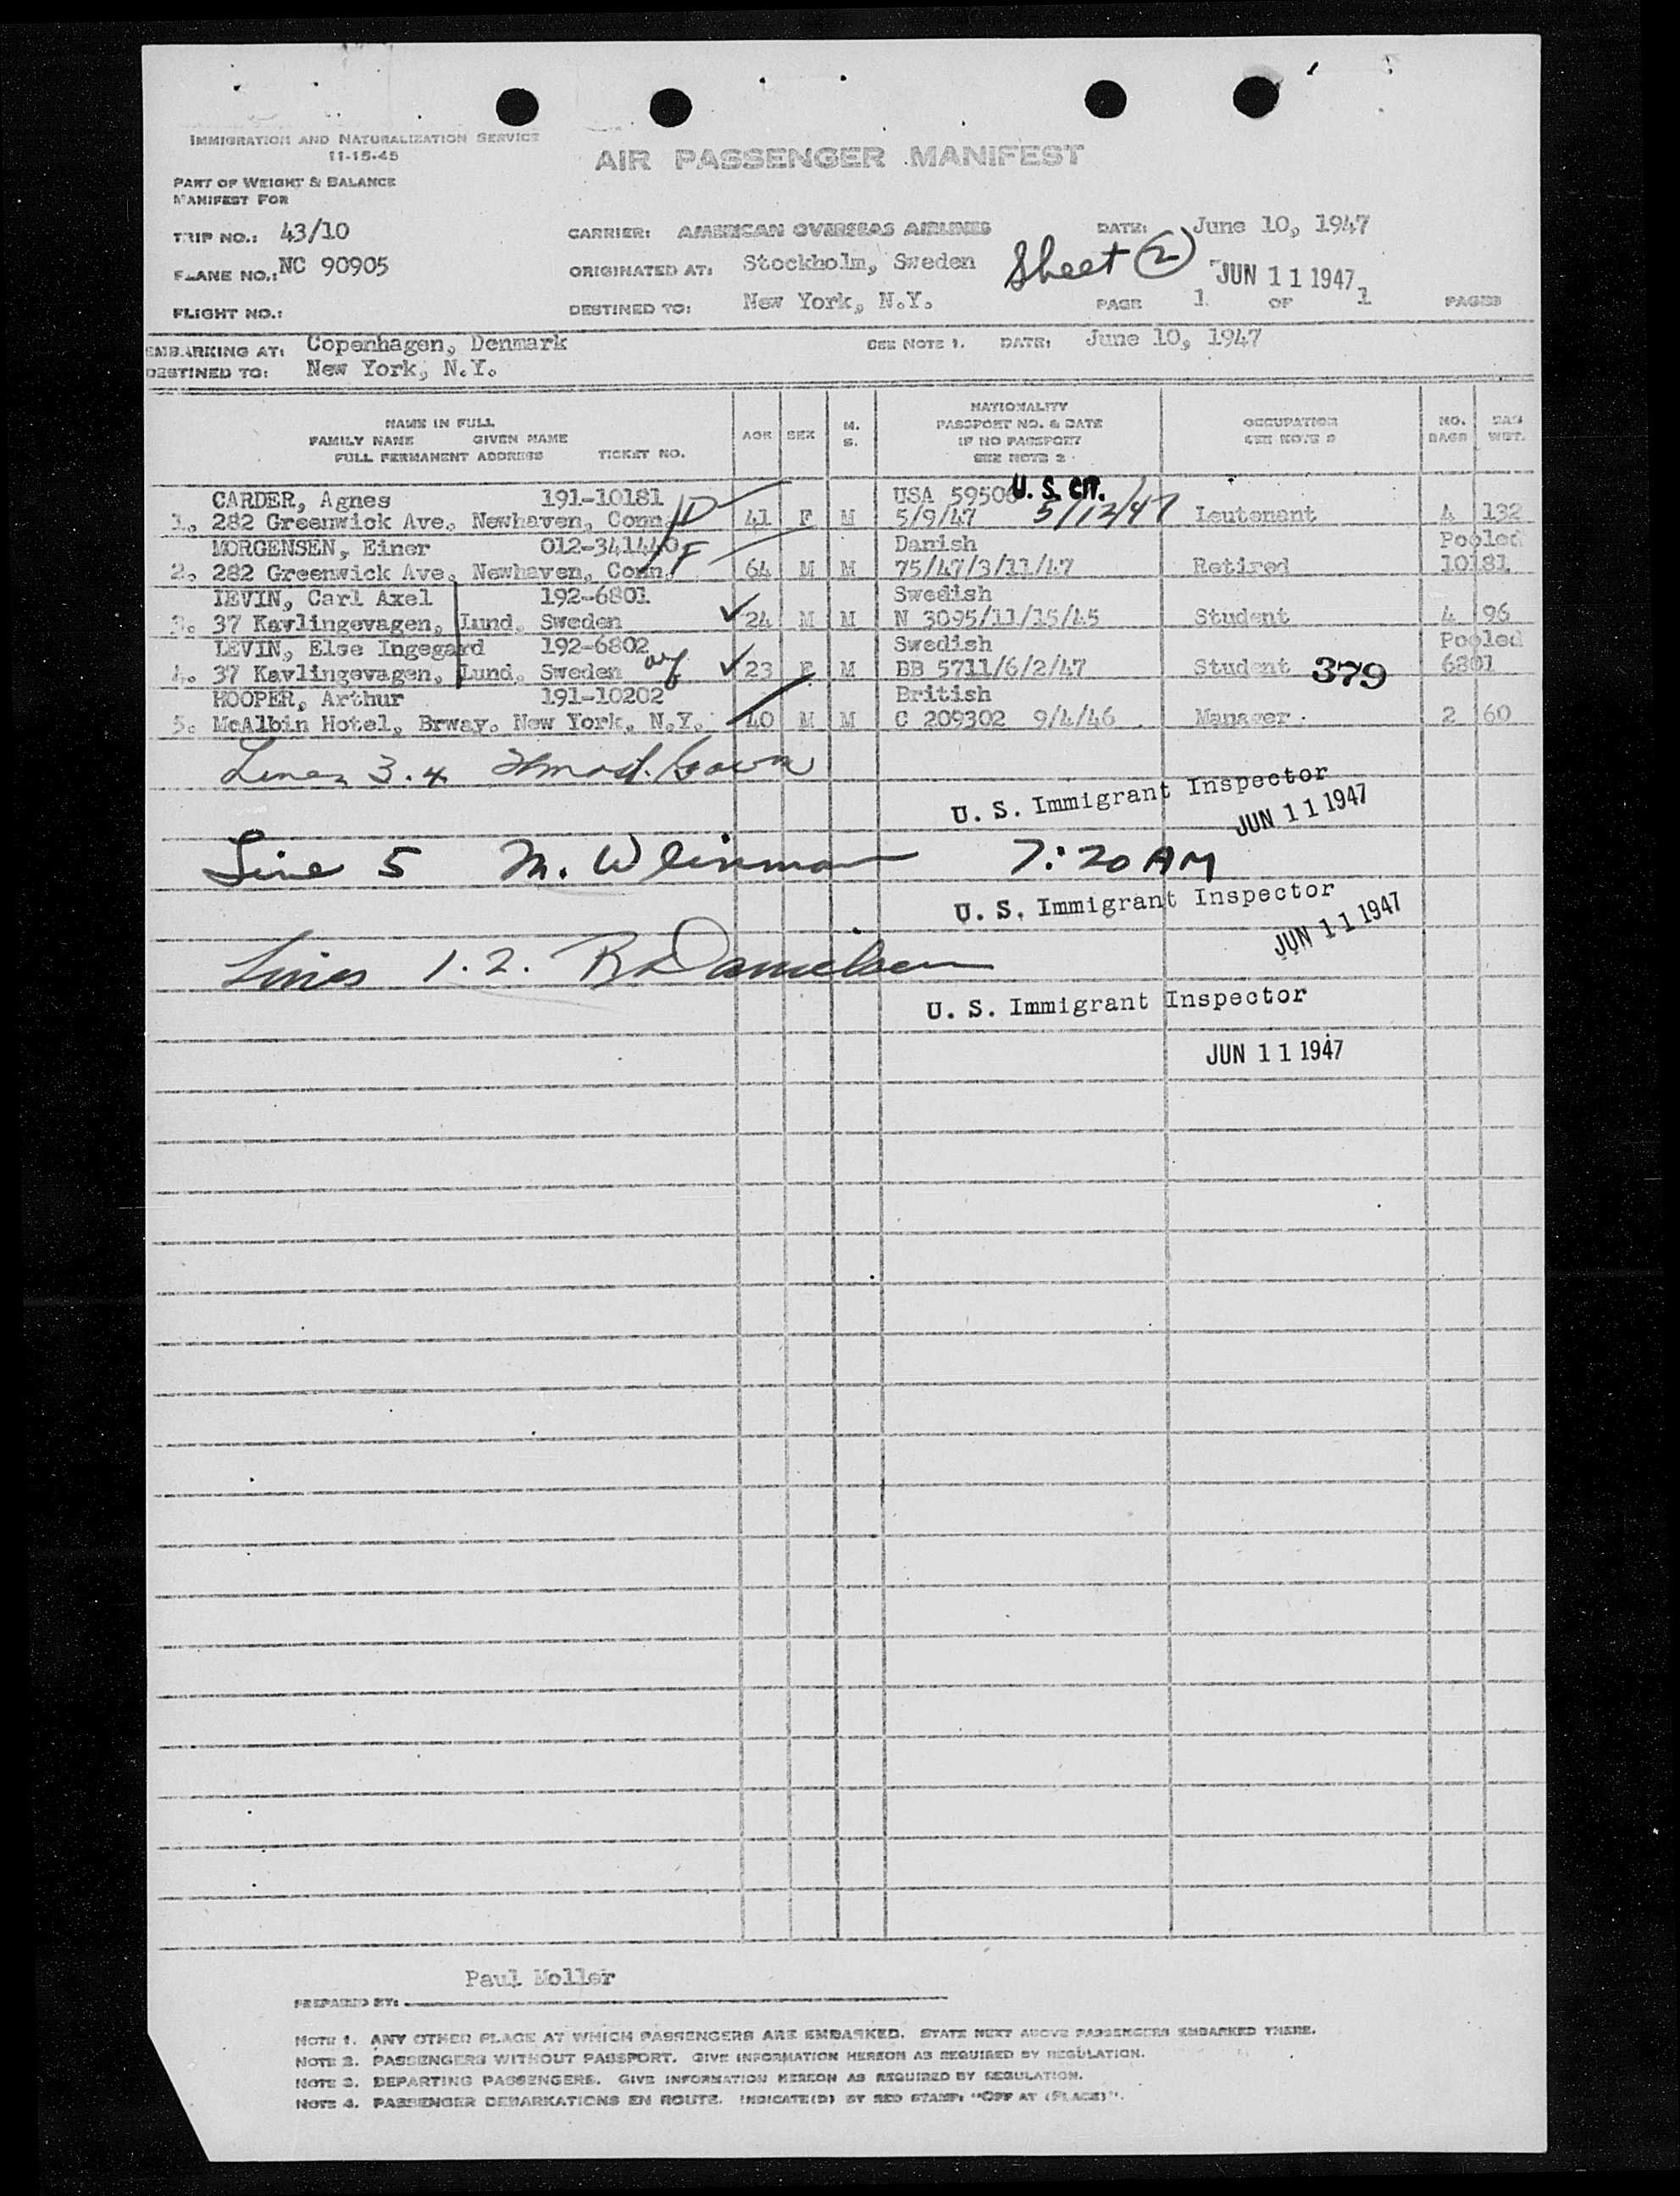 IMMIGRATION AND NATURALIZATION SERVICE
11-15-45
AIR PASSENGER MANIFEST
PART OF WEIGHT & BALANCE
MANIFEST FOR
TRIP NO.: 43/10 CARRIER: AMERICAN OVERSEAS AIRLINES DATE: June 10, 1947
PLANE NO.: NC 90905 ORIGINATED AT: Stockholm, Sweden Sheet 2 JUN 11 1947
FLIGHT NO.: DESTINED TO: New York, N.Y. PAGE 1 OF 1 PAGES
EMBARKING AT: Copenhagen, Denmark SEE NOTE 1. DATE: June 10, 1947
DESTINED TO: New York, N.Y.
NAME IN FULL
FAMILY NAME GIVEN NAME
FULL PERMANENT ADDRESS TICKET NO.
AGE SEX M. S.
NATIONALITY
PASSPORT NO. & DATE
IF NO PASSPORT
SEE NOTE 2
OCCUPATION
SEE NOTE 3
NO. BAGS
BAG WGT.
CARDER, Agnes 191-10181 USA 59506 U. S. CIT.
1. 282 Greenwick Ave., Newhaven, Conn. D 41 F M 5/9/47 5/12/47 Leutenant 4 132
MORGENSEN, Einer 012-341440 Danish Pooled
2. 282 Greenwick Ave. Newhaven, Conn. F 64 M M 75/47/3/11/47 Retired 10181
LEVIN, Carl Axel 192-6801 Swedish
3. 37 Kavlingevagen, Lund, Sweden ✓ 24 M M N 3095/11/15/45 Student 4 96
LEVIN, Else Ingegard 192-6802 Swedish Pooled
4. 37 Kavlingevagen, Lund, Sweden ✓ 23 F M BB 5711/6/2/47 Student 379 6801
HOOPER, Arthur 191-10202 British
5. McAlbin Hotel, Brway. New York, N.Y. 40 M M C 209302 9/4/46 Manager 2 60
Lines 3.4
U. S. Immigrant Inspector
JUN 11 1947
Line 5 M. Weinman 7:20 AM
U. S. Immigrant Inspector
JUN 11 1947
Lines 1.2. R Danielsen
U. S. Immigrant Inspector
JUN 11 1947
Paul Moller
PREPARED BY:
NOTE 1. ANY OTHER PLACE AT WHICH PASSENGERS ARE EMBARKED. STATE NEXT ABOVE PASSENGERS EMBARKED THERE.
NOTE 2. PASSENGERS WITHOUT PASSPORT. GIVE INFORMATION HEREON AS REQUIRED BY REGULATION.
NOTE 3. DEPARTING PASSENGERS. GIVE INFORMATION HEREON AS REQUIRED BY REGULATION.
NOTE 4. PASSENGER DEBARKATIONS EN ROUTE. INDICATE(D) BY RED STAMP: "OFF AT (PLACE)".